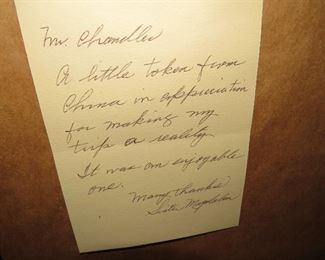 Mr. Chandler
A little token from
China in appreciation
for making my
trip a reality.
It was an enjoyable
one.
Many thanks
Sister